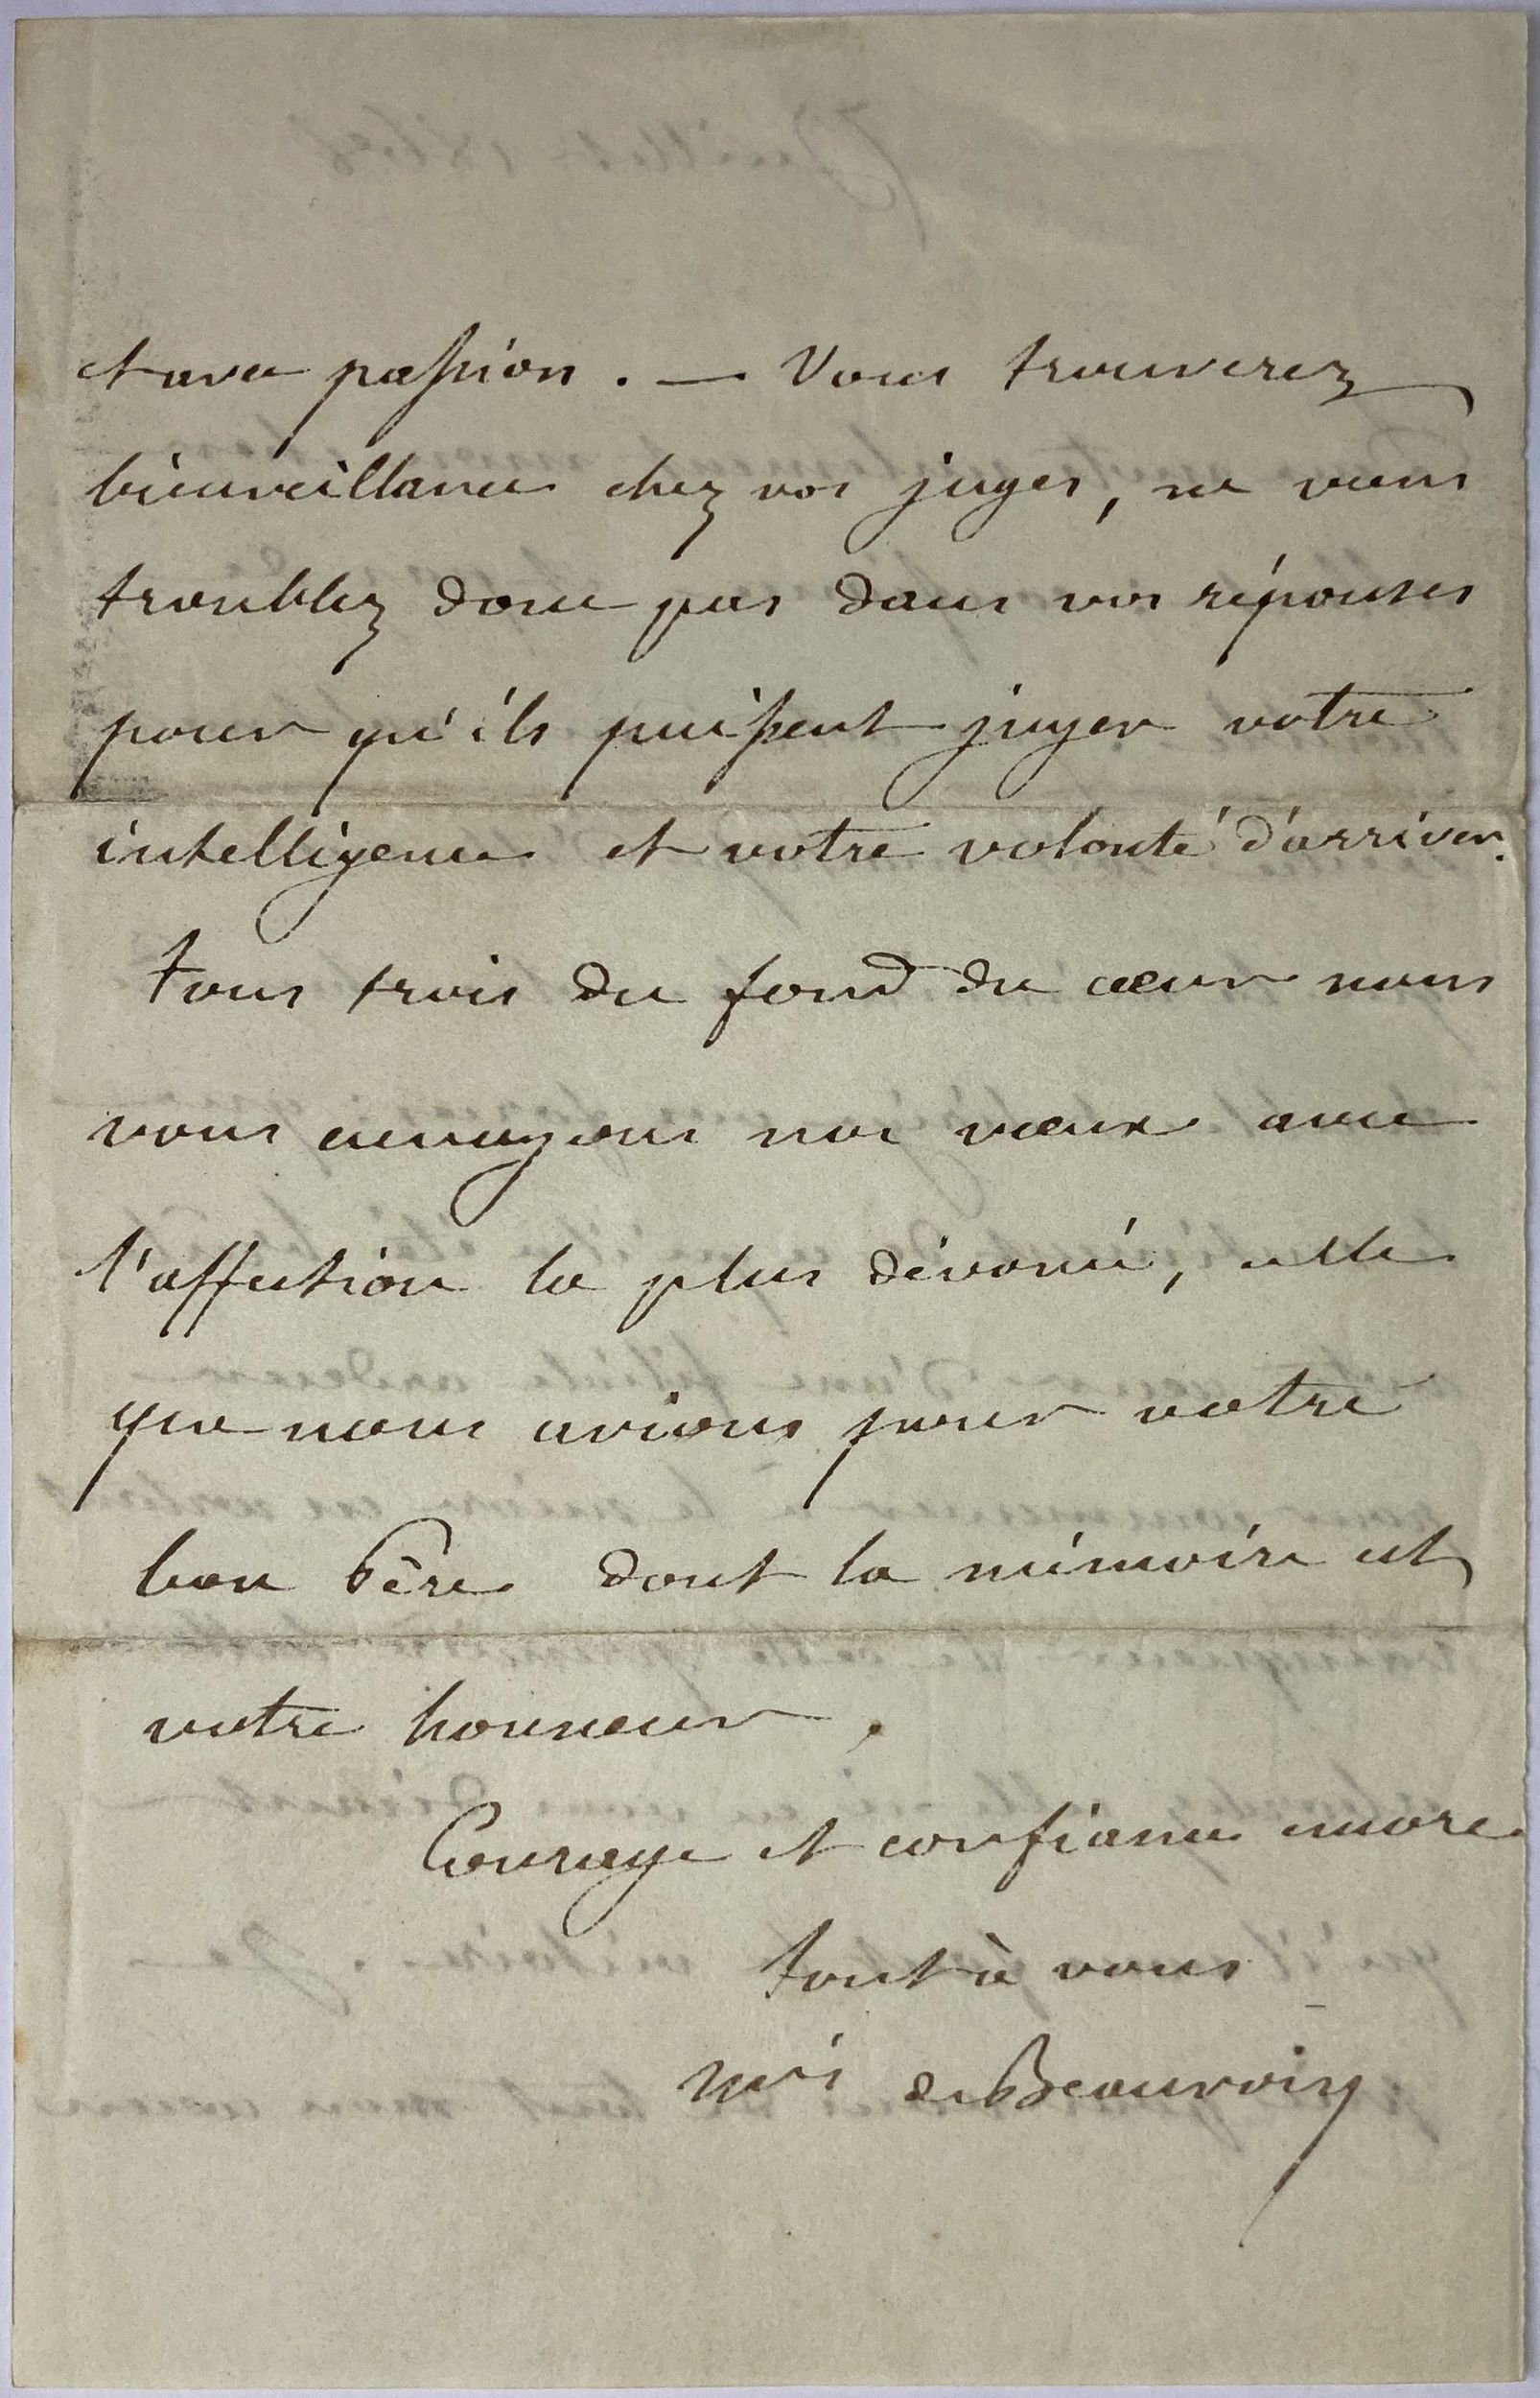 et avec passion. — Vous trouverez
bienveillance chez vos juges, ne vous
troublez donc pas dans vos réponses
pour qu'ils puissent juger votre
intelligence et votre volonté d'arriver.
Tous trois du fond du cœur nous
vous envoyons nos vœux avec
l'affection la plus dévouée, celle
que nous avions pour votre
bon Père dont la mémoire est
votre honneur.
Courage et confiance encore
tout à vous
Mis de Beauvoir